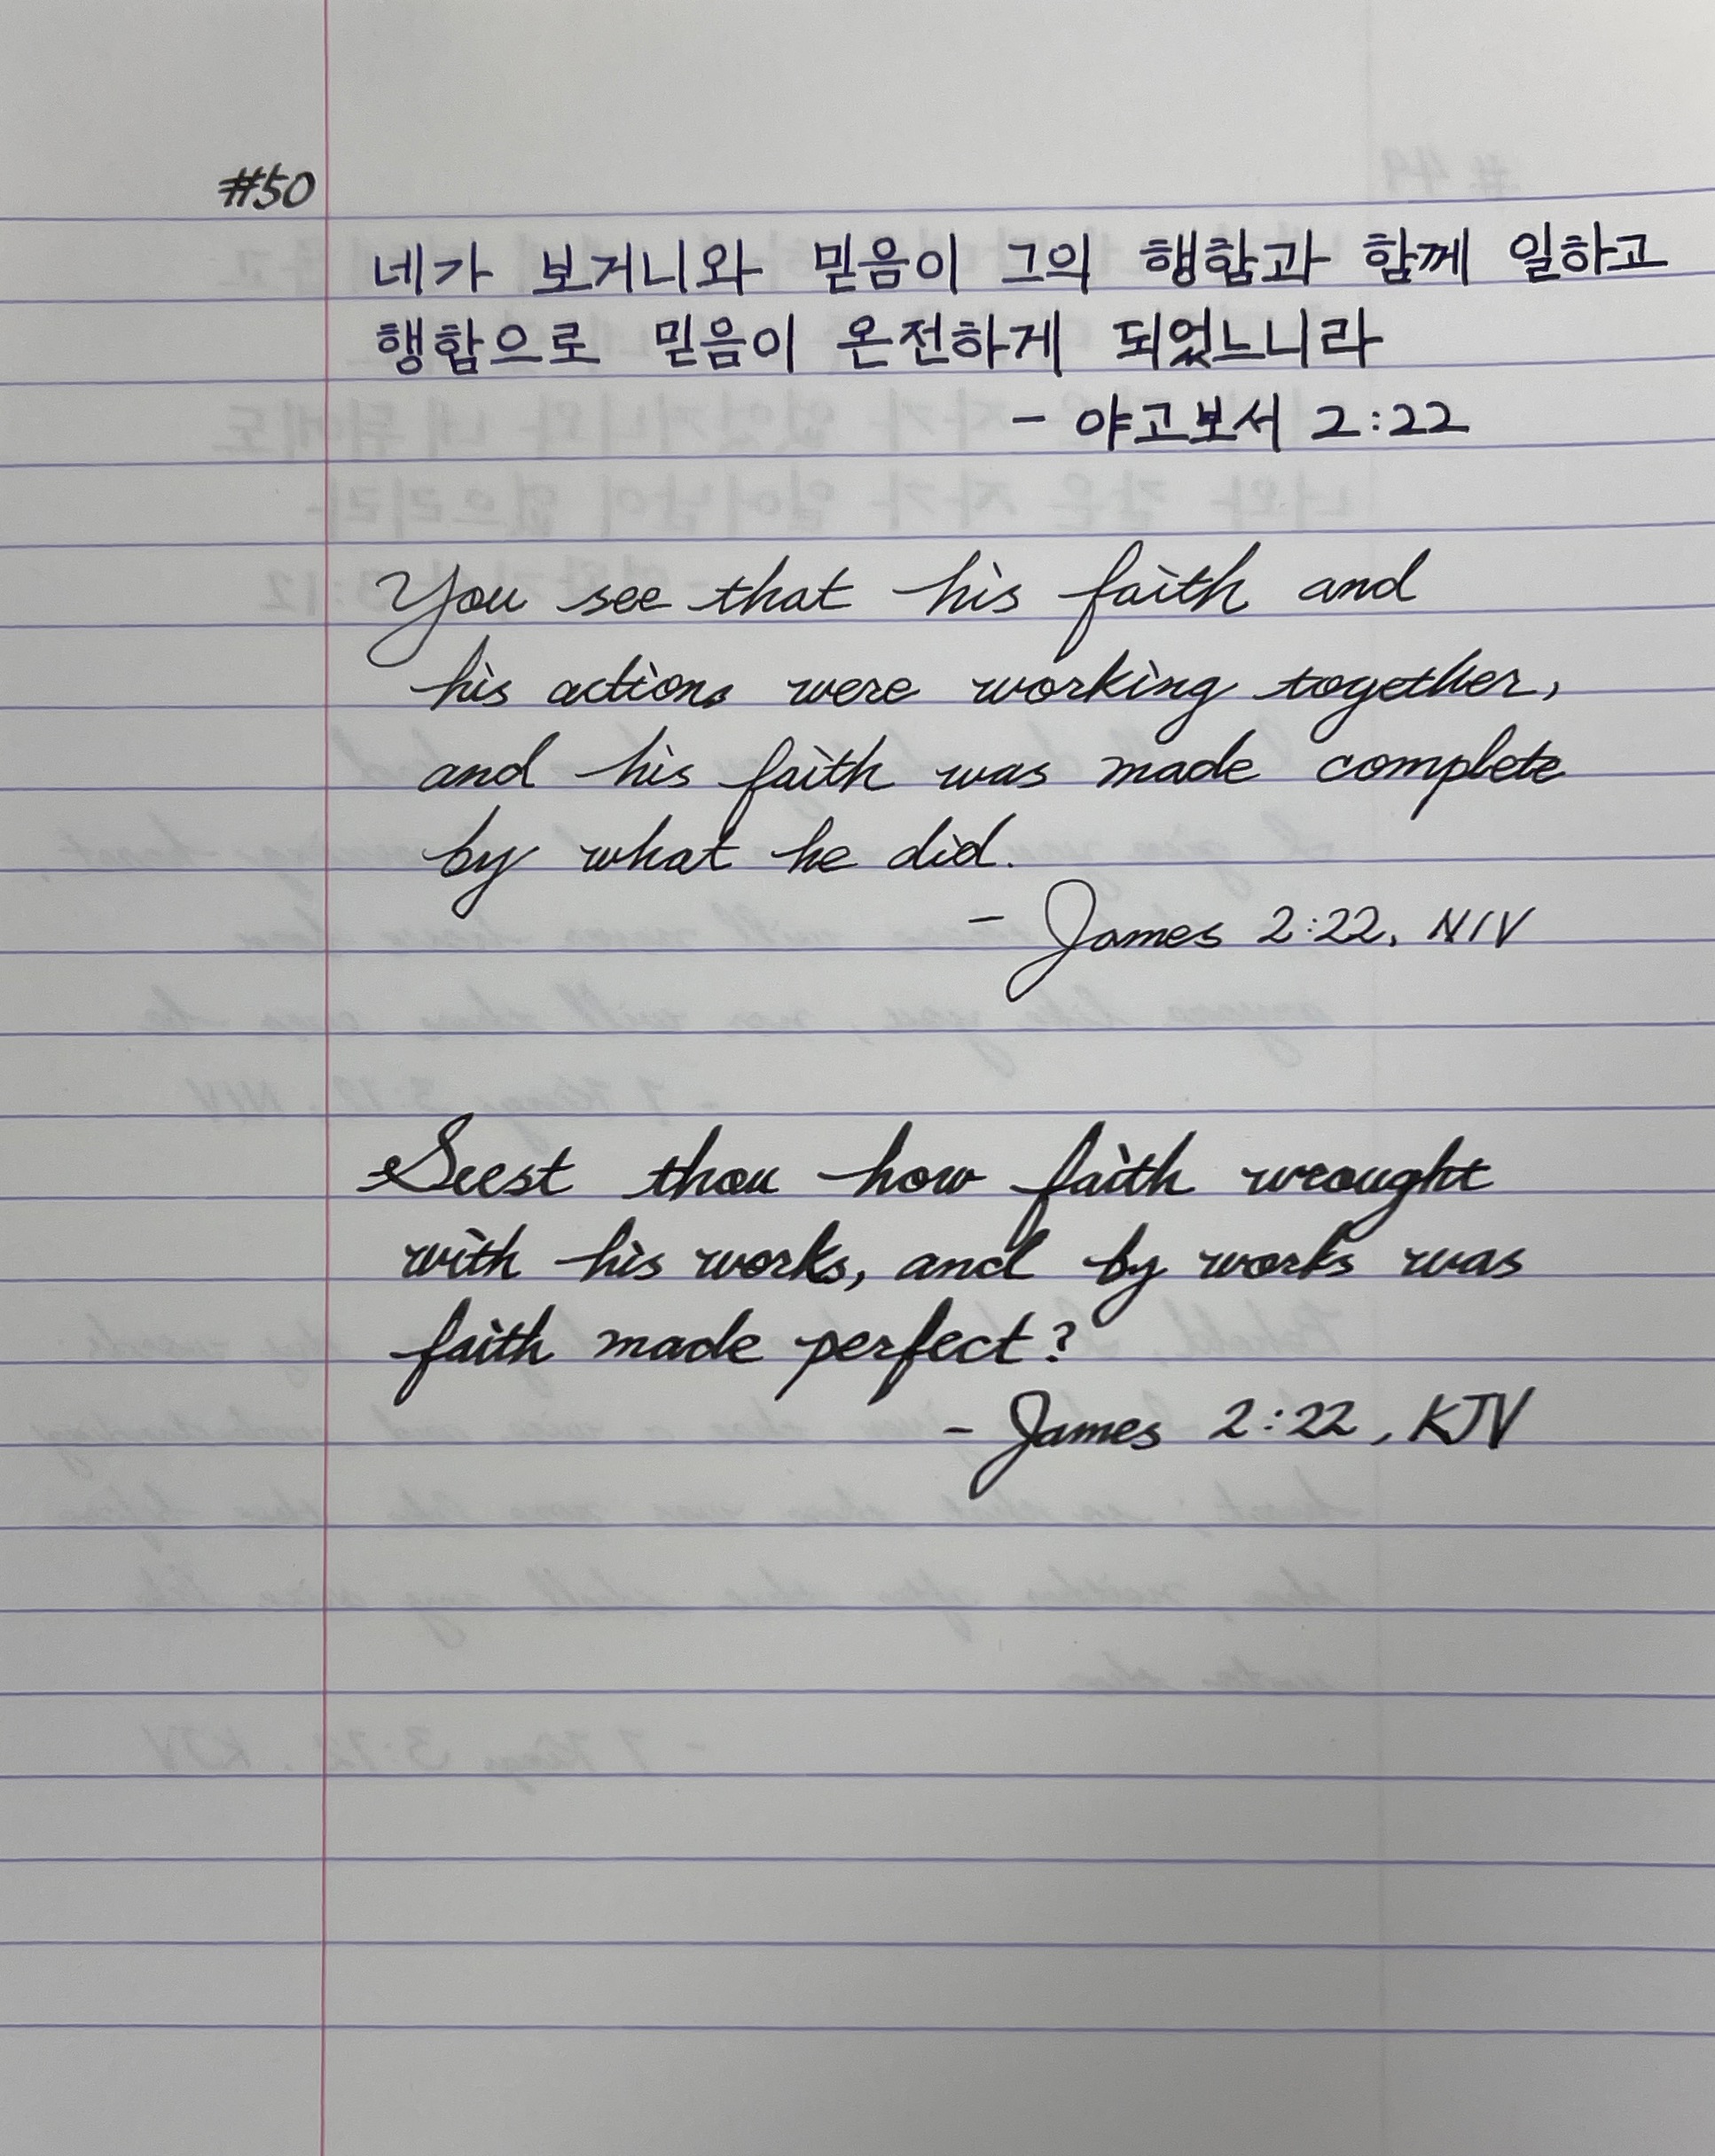 #50
네가 보거니와 믿음이 그의 행함과 함께 일하고
행함으로 믿음이 온전하게 되었느니라
- 야고보서 2:22
You see that his faith and
his actions were working together,
and his faith was made complete
by what he did.
- James 2:22, NIV
Seest thou how faith wrought
with his works, and by works was
faith made perfect?
- James 2:22, KJV